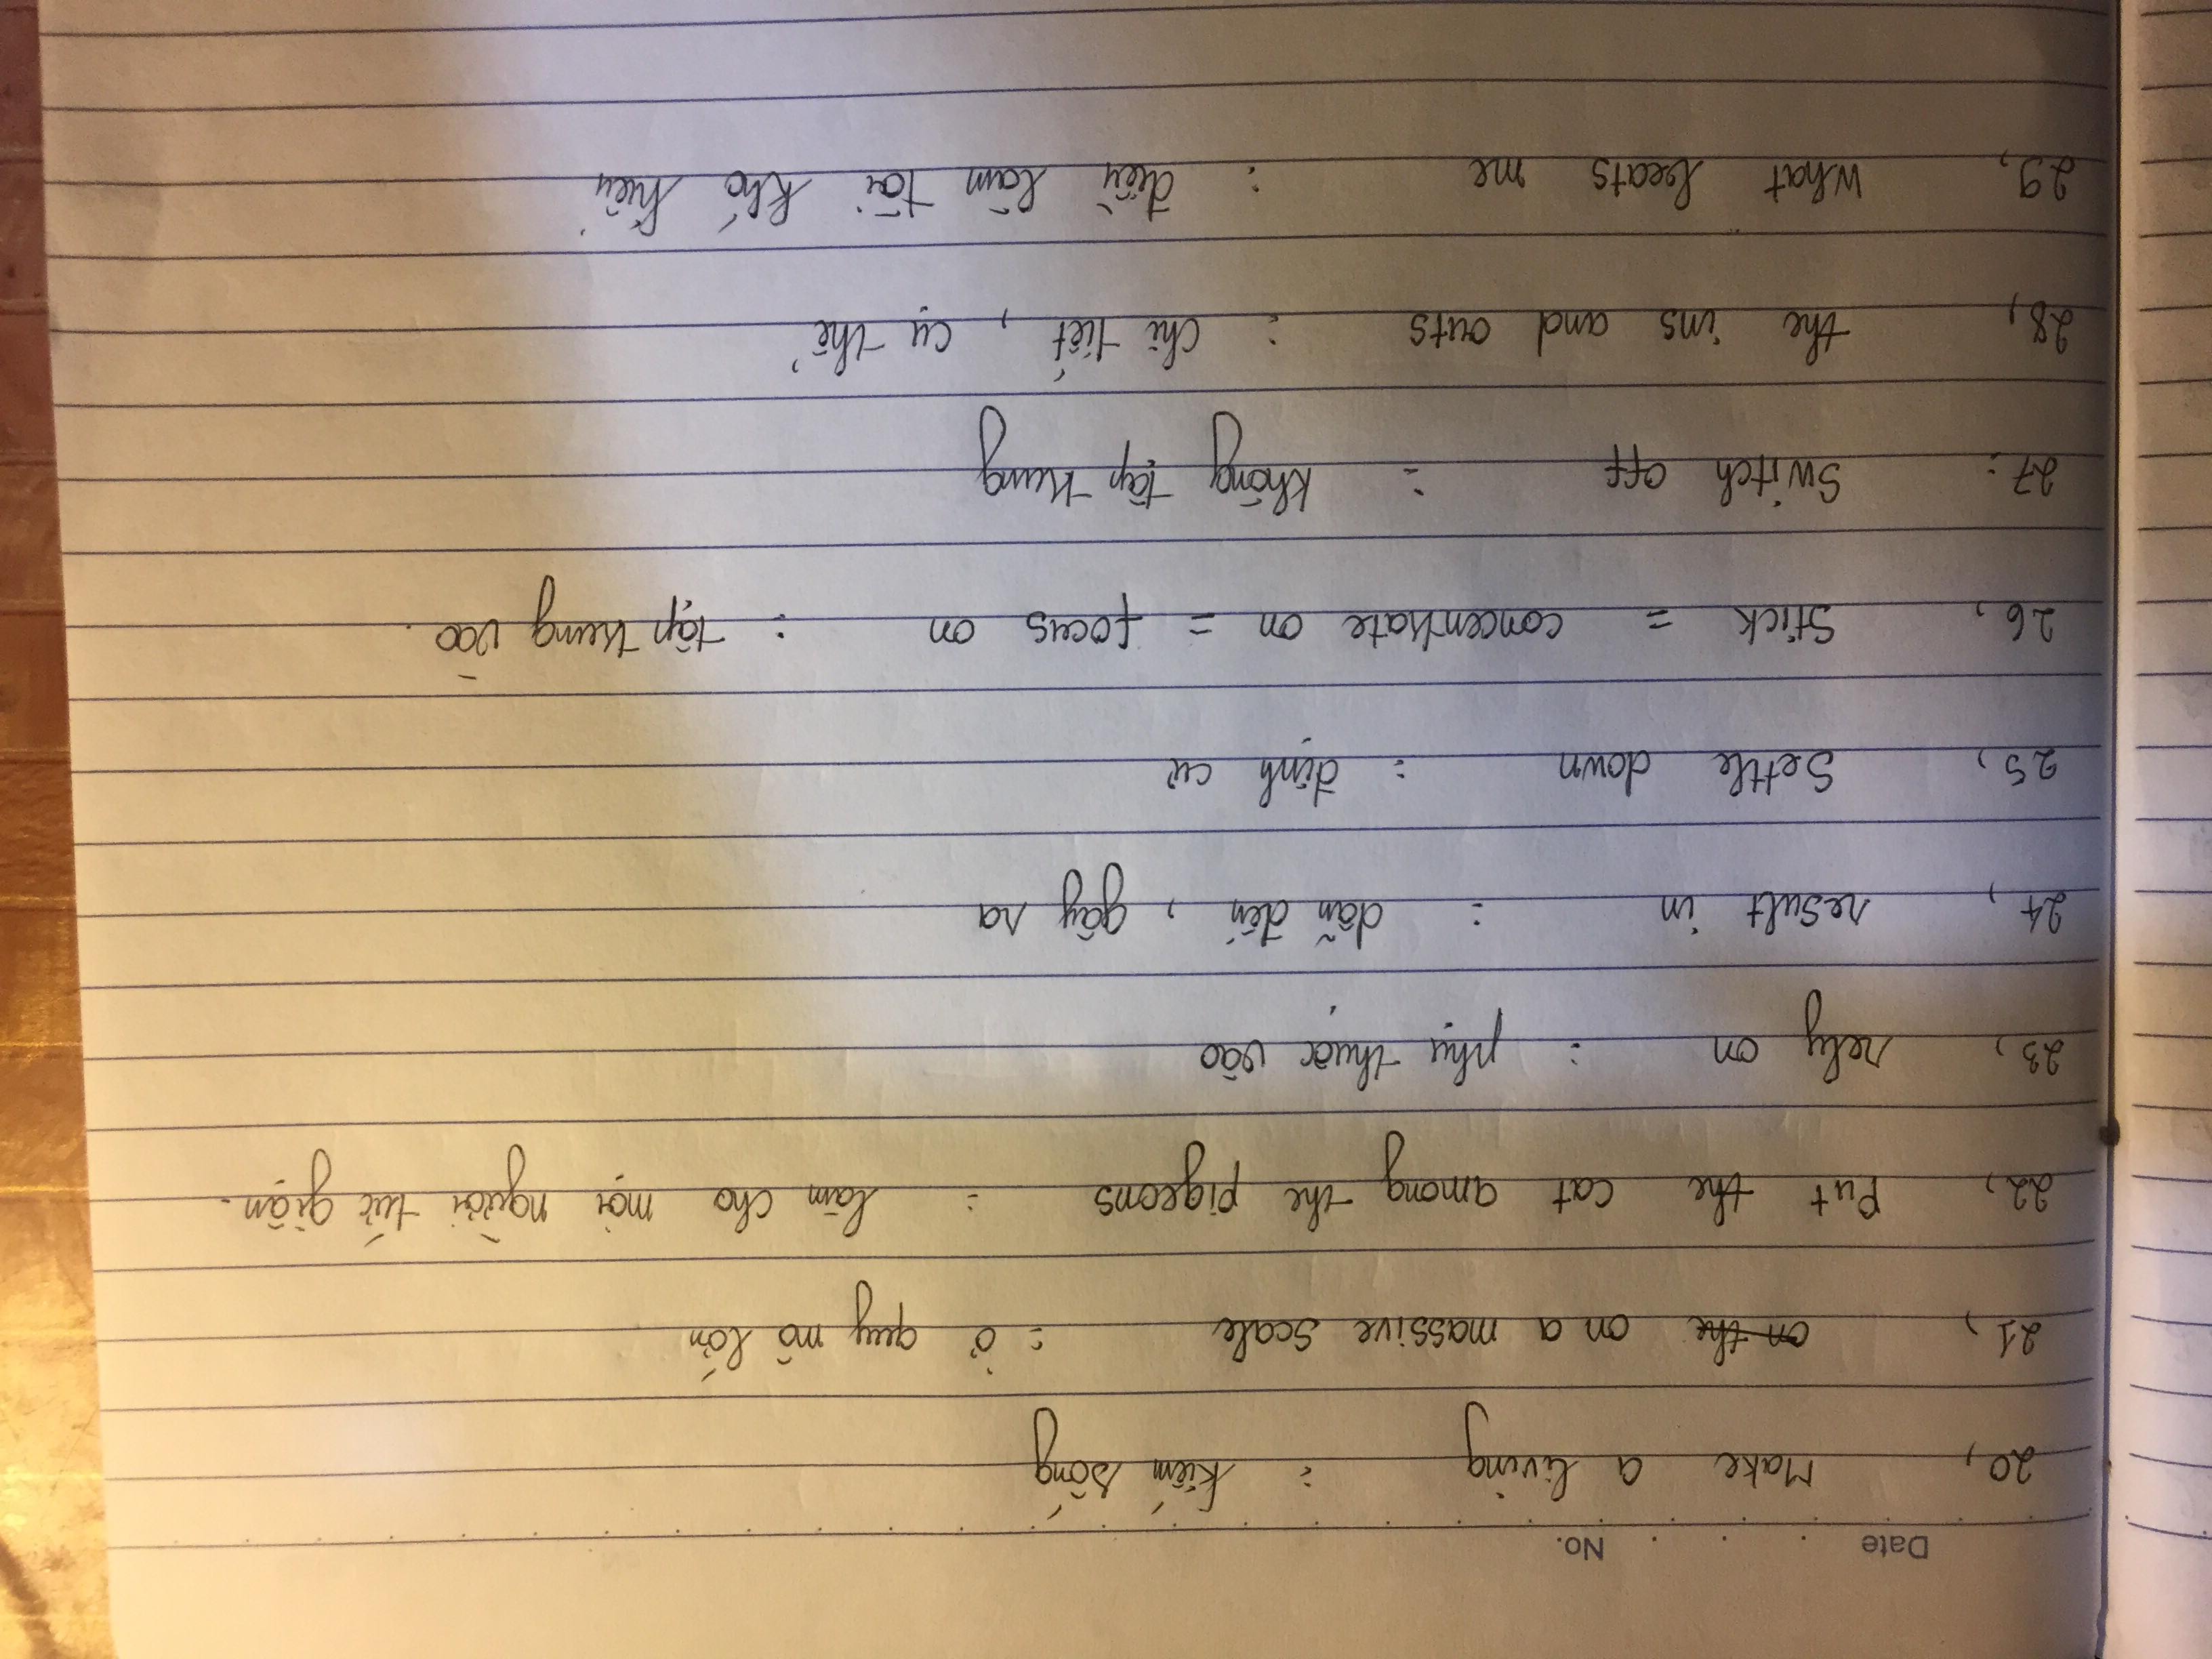 Date No.
20, Make a living : kiếm sống
21, on the on a massive scale : ở quy mô lớn
22, Put the cat among the pigeons : làm cho mọi người tức giận.
23, rely on : phụ thuộc vào
24, result in : dẫn đến, gây ra
25, Settle down : định cư
26, Stick = concentrate on = focus on : tập trung vào.
27: Switch off : không tập trung
28, the ins and outs : chi tiết, cụ thể
29, What beats me : điều làm tôi khó hiểu